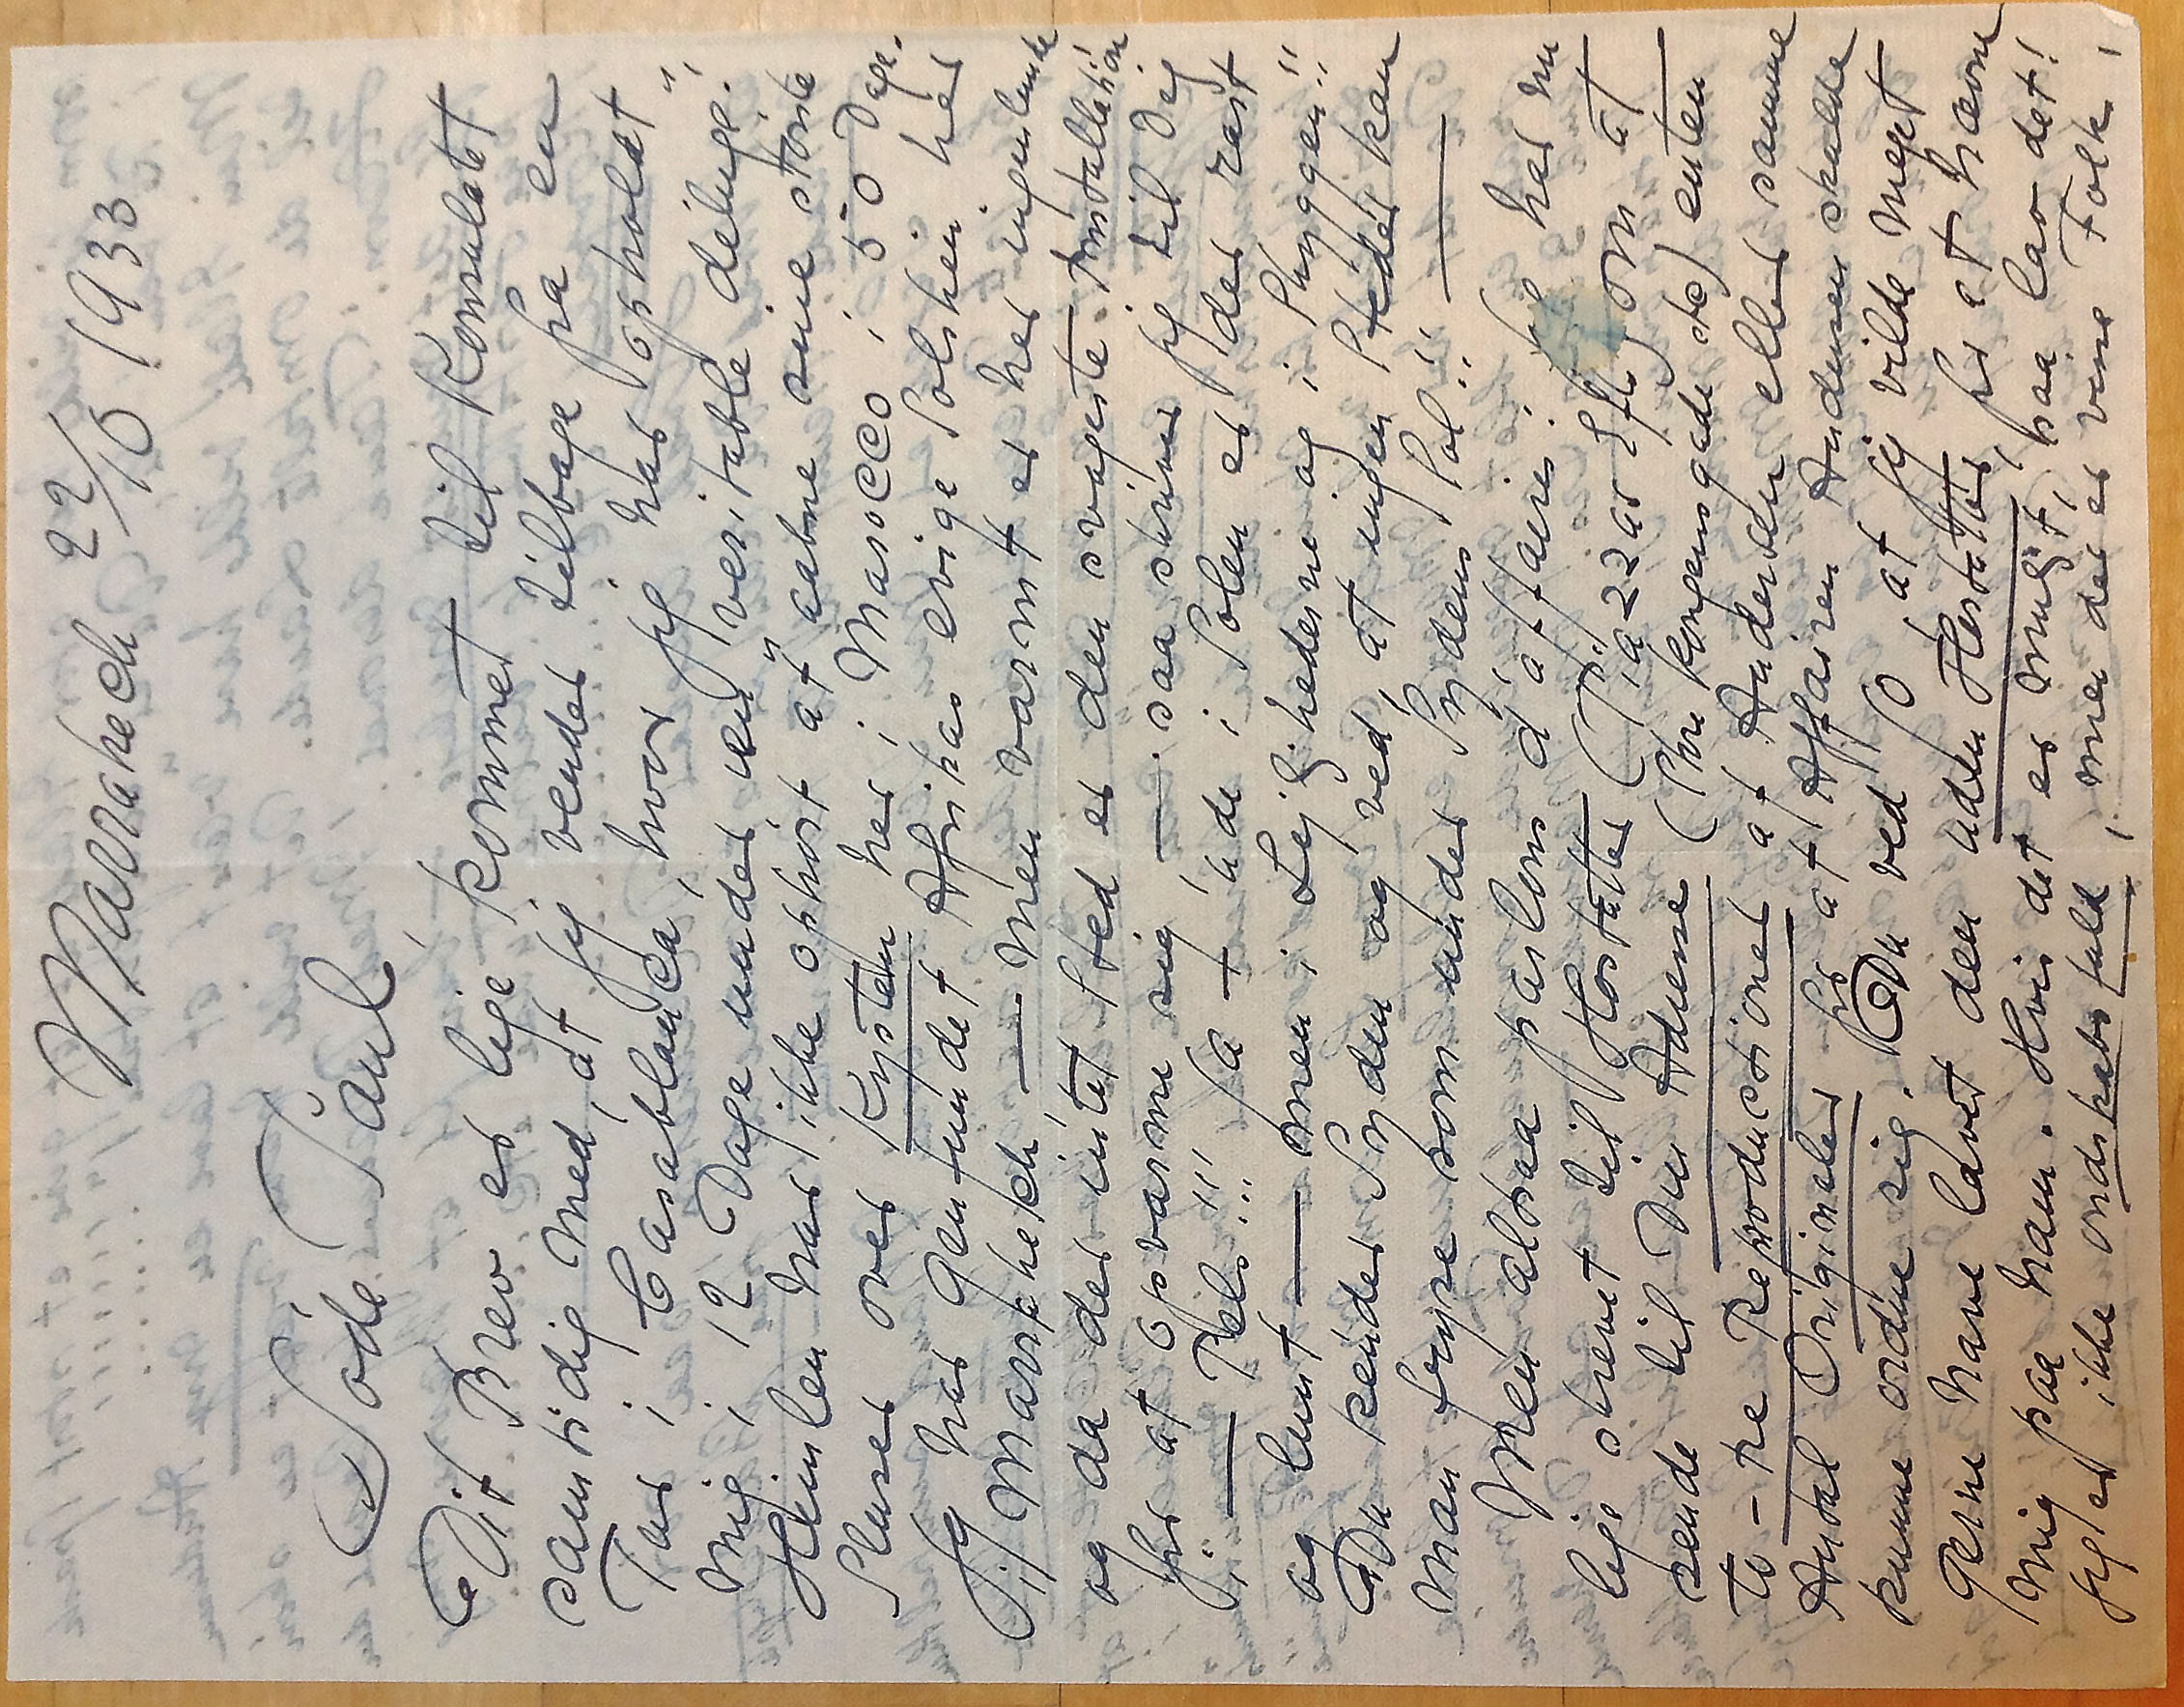 Marrakech 22/10 1933
Søde Paul,
Dit Brev er lige kommet til Konsulatet
samtidig med, at jeg vender tilbage fra en
Tur i Casablanca, hvor jeg har opholdt
mig i 12 Dage under en "veritable déluge"!
Himlen har ikke ophørt at aabne sine største
Sluser over Kysten her i Marocco i 50 Dage.
Jeg har genfundet Afrikas evige Solskin her
i Marrakech, — men varmt er her ingenlunde
og da der intet Sted er den svageste Installation
for at opvarme sig, — saa skriver jeg til Dig
i — Pels!!! Ja — ude i Solen er der rart
og lunt — men i Lejlighederne og i Skyggen!!
Du kender Syden og ved, at ingen Steder kan
man fryse som under Sydens Sol!! —
Men altsaa parlons d'affaires: Jeg har nu
lige skrevet til Hostatter (Piazzas Eftf) om at
sende til Din Adresse (Store Kongensgade etc) enten
to - tre Reproductioner af Andersen eller samme
Antal Originaler for at Affairen Andersen skulde
kunne ordne sig. Du ved jo, at jeg vilde meget
gerne have lavet den uden Hostatter, for at hævne
mig paa ham. Hvis det er muligt, saa lav det!
Jeg er ikke ondskabsfuld, men der er visse Folk,